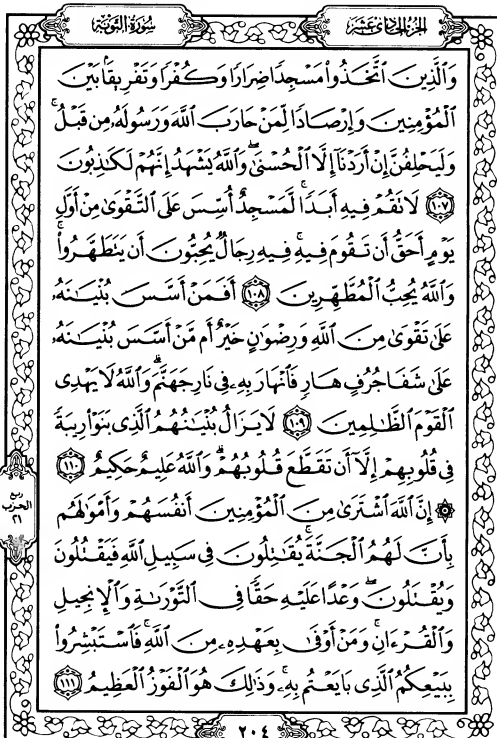 سورة التوبة
الجزء الحادي عشر
وَالَّذِينَ اتَّخَذُوا مَسْجِدًا ضِرَارًا وَكُفْرًا وَتَفْرِيقًا بَيْنَ
الْمُؤْمِنِينَ وَإِرْصَادًا لِّمَنْ حَارَبَ اللَّهَ وَرَسُولَهُ مِن قَبْلُ ۚ
وَلَيَحْلِفُنَّ إِنْ أَرَدْنَا إِلَّا الْحُسْنَىٰ ۖ وَاللَّهُ يَشْهَدُ إِنَّهُمْ لَكَاذِبُونَ
١٠٧ لَا تَقُمْ فِيهِ أَبَدًا ۚ لَّمَسْجِدٌ أُسِّسَ عَلَى التَّقْوَىٰ مِنْ أَوَّلِ
يَوْمٍ أَحَقُّ أَن تَقُومَ فِيهِ ۚ فِيهِ رِجَالٌ يُحِبُّونَ أَن يَتَطَهَّرُوا ۚ
وَاللَّهُ يُحِبُّ الْمُطَّهِّرِينَ ١٠٨ أَفَمَنْ أَسَّسَ بُنْيَانَهُ
عَلَىٰ تَقْوَىٰ مِنَ اللَّهِ وَرِضْوَانٍ خَيْرٌ أَم مَّنْ أَسَّسَ بُنْيَانَهُ
عَلَىٰ شَفَا جُرُفٍ هَارٍ فَانْهَارَ بِهِ فِي نَارِ جَهَنَّمَ ۗ وَاللَّهُ لَا يَهْدِي
الْقَوْمَ الظَّالِمِينَ ١٠٩ لَا يَزَالُ بُنْيَانُهُمُ الَّذِي بَنَوْا رِيبَةً
فِي قُلُوبِهِمْ إِلَّا أَن تَقَطَّعَ قُلُوبُهُمْ ۗ وَاللَّهُ عَلِيمٌ حَكِيمٌ ١١٠
۞ إِنَّ اللَّهَ اشْتَرَىٰ مِنَ الْمُؤْمِنِينَ أَنفُسَهُمْ وَأَمْوَالَهُم
بِأَنَّ لَهُمُ الْجَنَّةَ ۚ يُقَاتِلُونَ فِي سَبِيلِ اللَّهِ فَيَقْتُلُونَ
وَيُقْتَلُونَ ۖ وَعْدًا عَلَيْهِ حَقًّا فِي التَّوْرَاةِ وَالْإِنجِيلِ
وَالْقُرْءَانِ ۚ وَمَنْ أَوْفَىٰ بِعَهْدِهِ مِنَ اللَّهِ ۚ فَاسْتَبْشِرُوا
بِبَيْعِكُمُ الَّذِي بَايَعْتُم بِهِ ۚ وَذَٰلِكَ هُوَ الْفَوْزُ الْعَظِيمُ ١١١
ربع
الحزب
٢١
٢٠٤